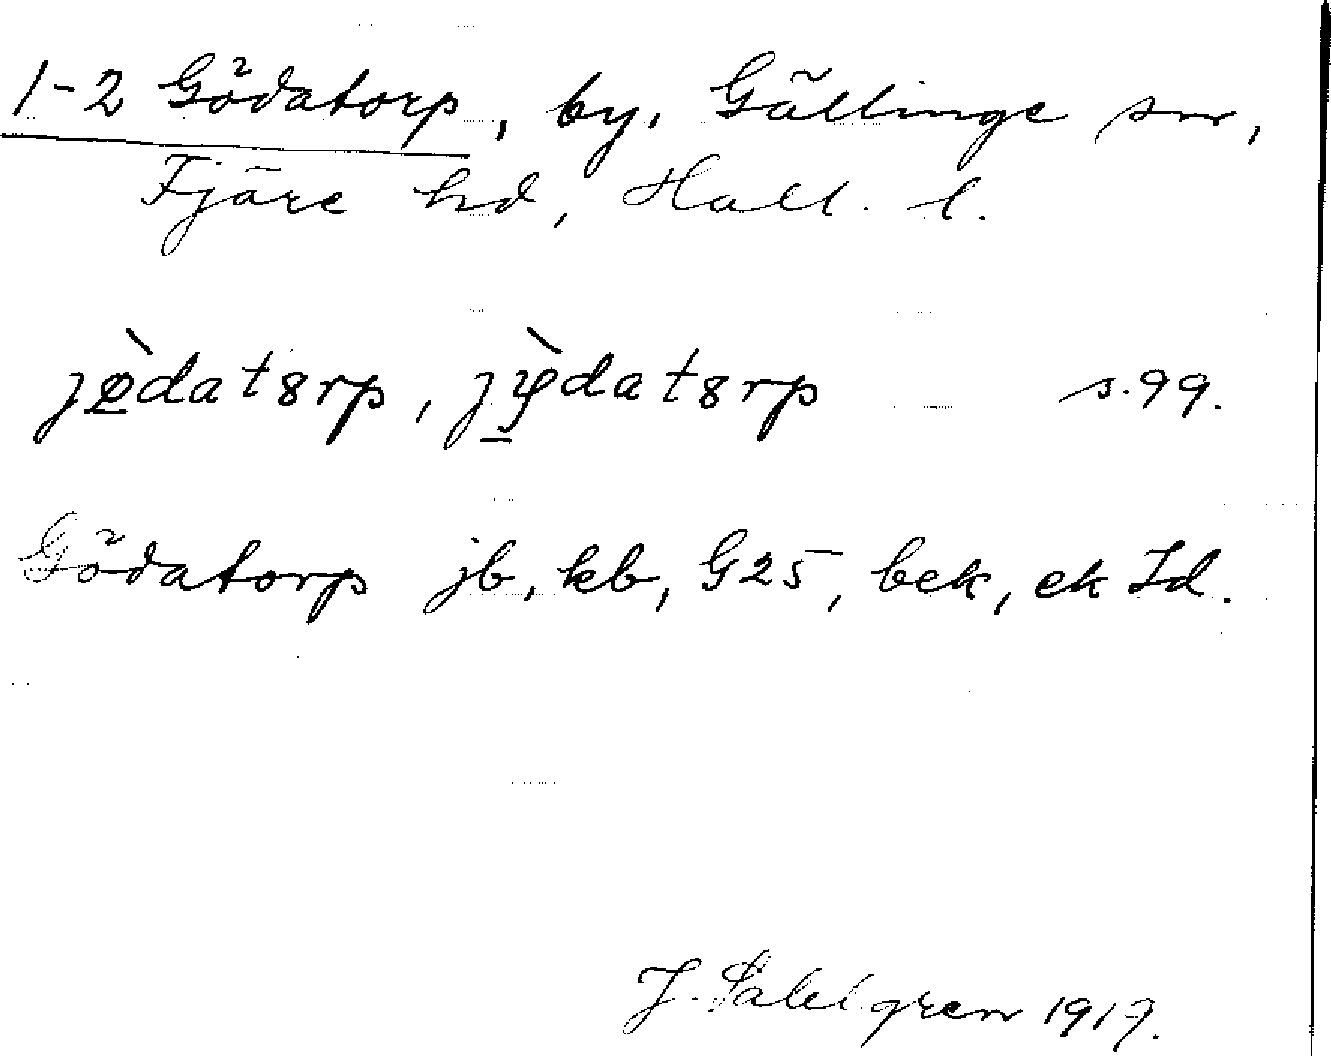 1-2 Gödatorp, by, Gällinge sn,
Fjäre hd, Hall. l.
jø̲̀datȣrp, jỳ̲datȣrp s. 99.
Gödatorp jb, kb, G25, bek, ek Id.
J. Sahlgren 1917.